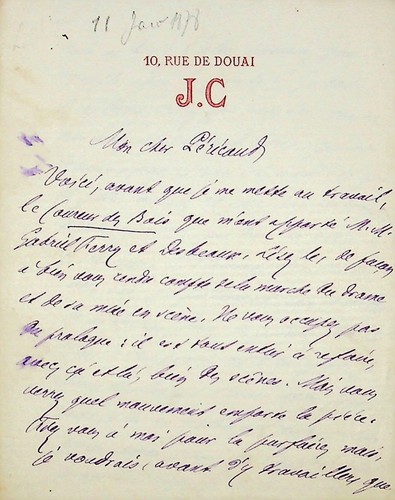 11 Janv 1878
10, RUE DE DOUAI
J.C
Mon cher Péricaud,
Voici, avant que je me mette au travail,
le Coureur des Bois que m'ont apporté M.M.
Gabriel Ferry et Desbeaux. Lisez les, de façon
à bien vous rendre compte de la marche du drame
et de sa mise en scène. Ne vous occupez pas
du prologue : il est tout entier à refaire,
avec, çà et là, bien des scènes. Mais vous
verrez quel mouvement emporte la pièce.
vous à moi pour la parfaire, mais,
je voudrais, avant d'y travailler, que